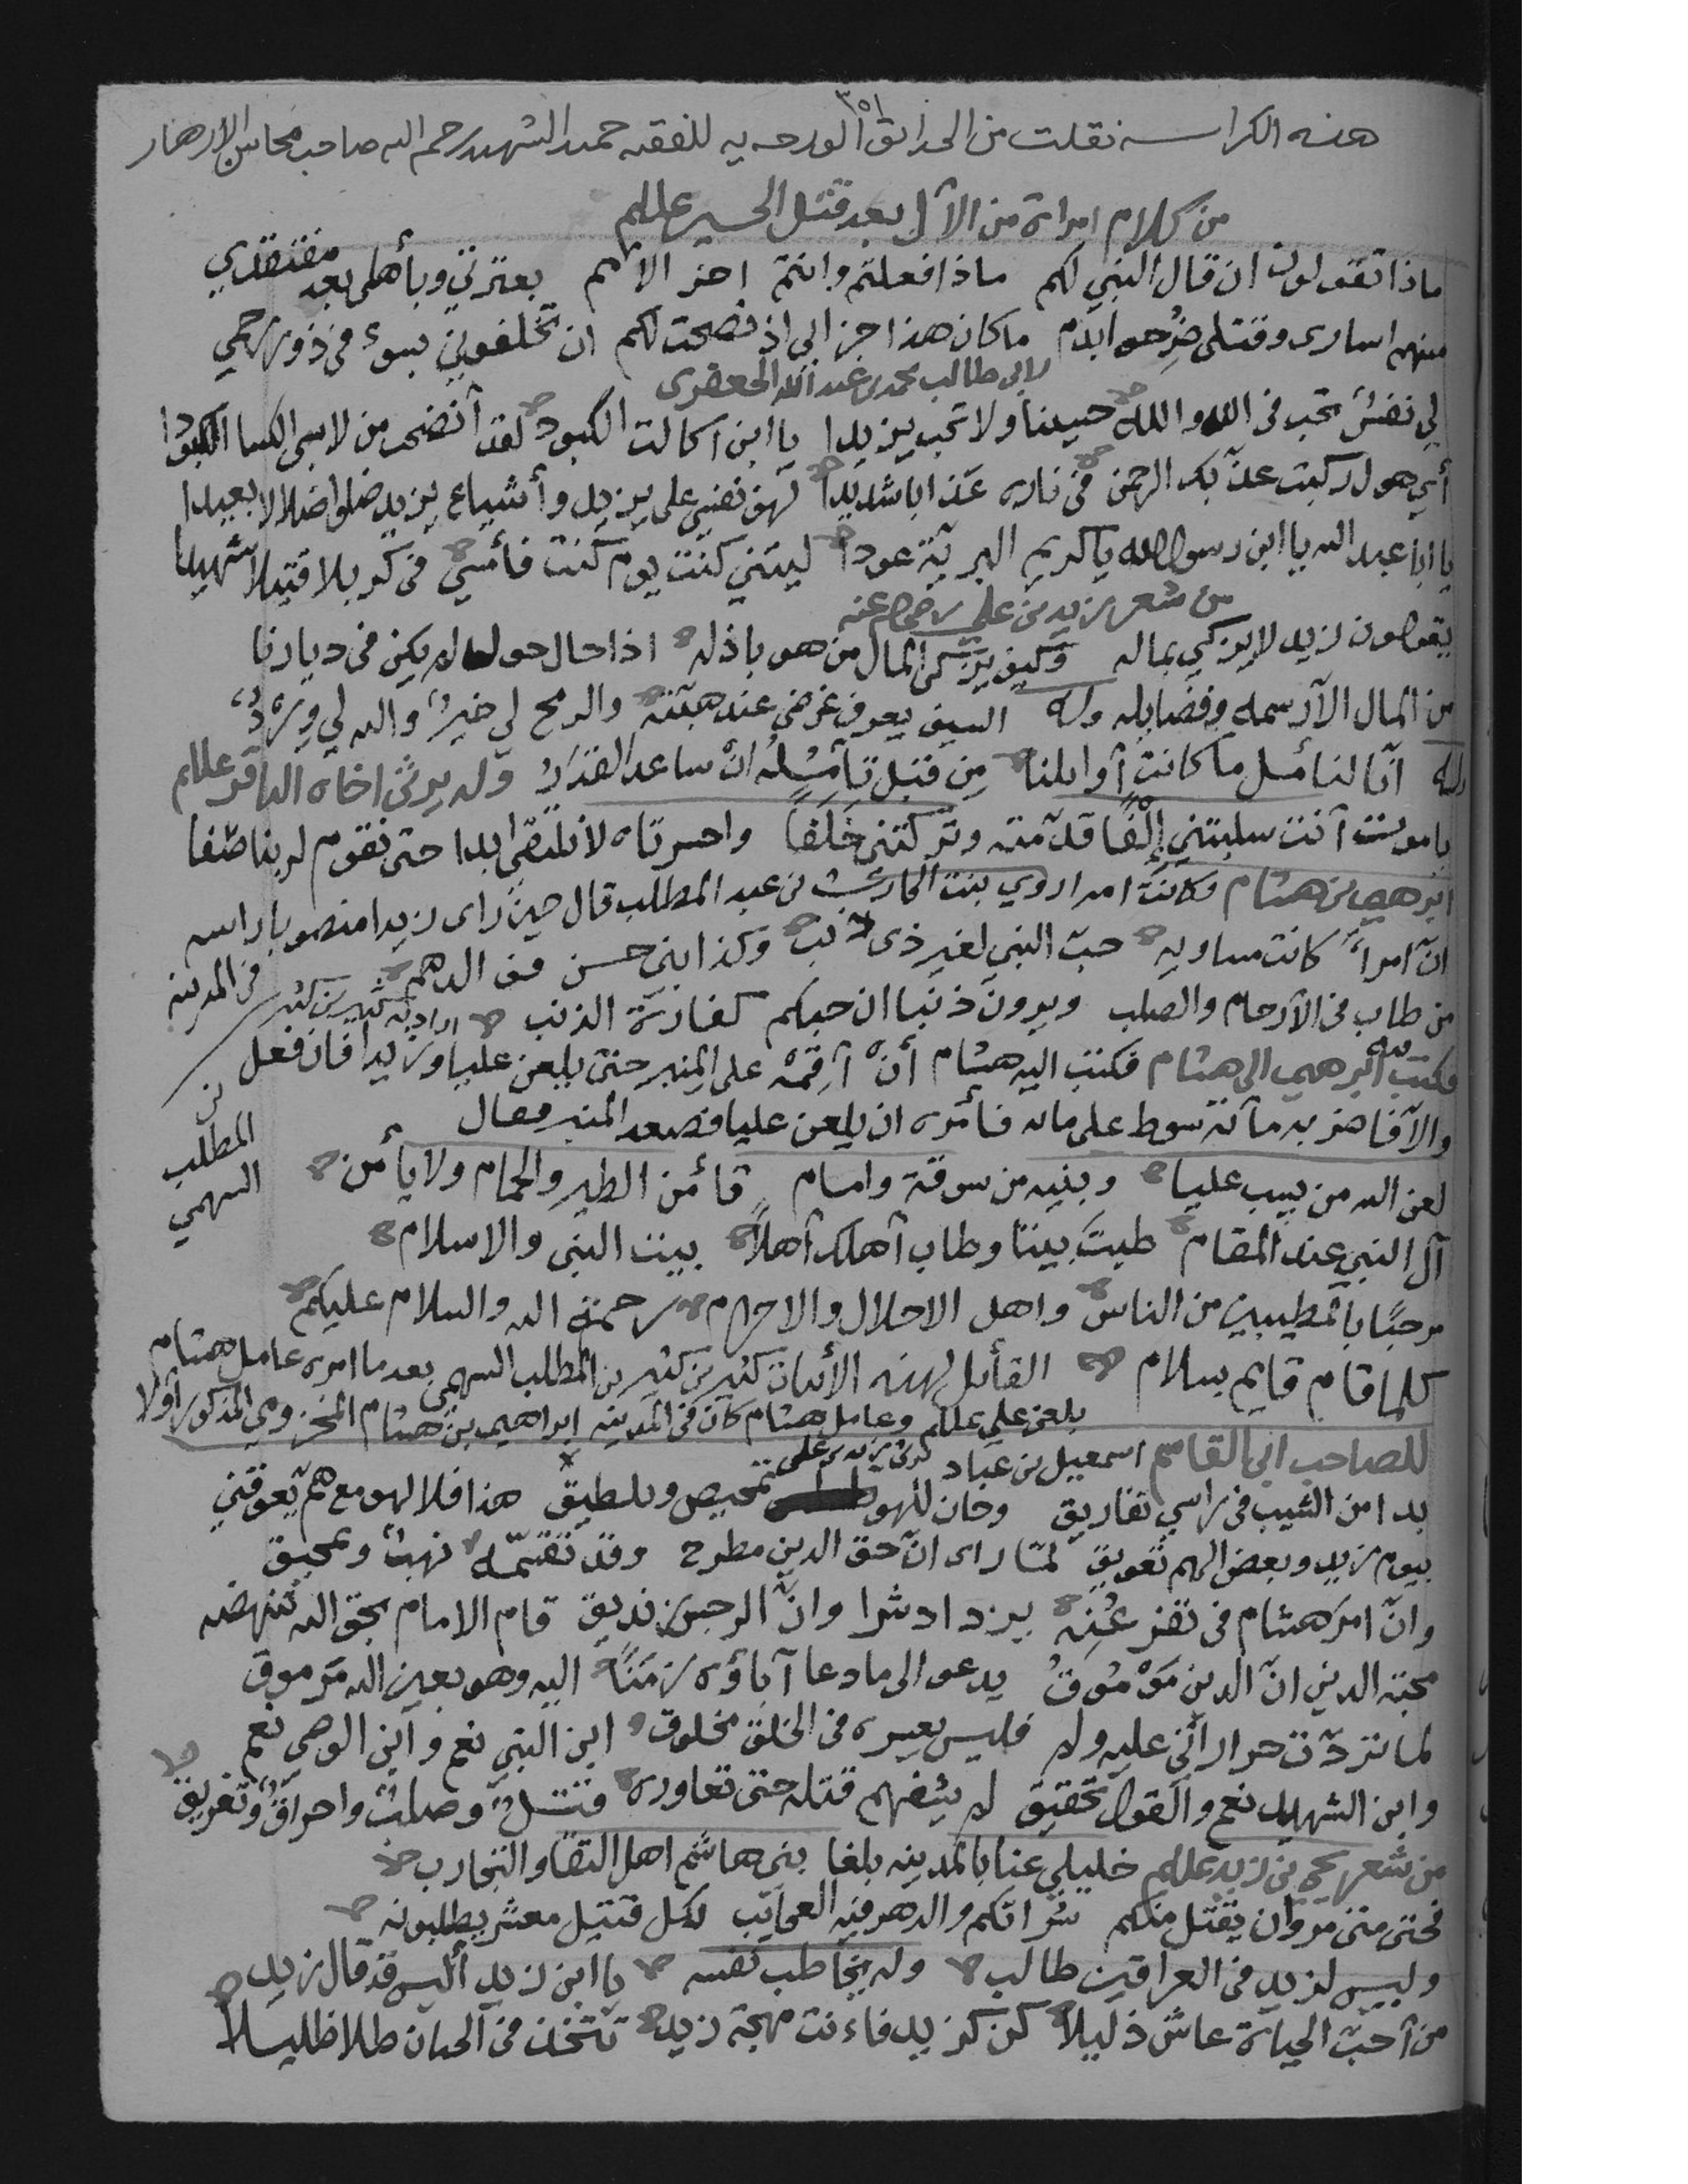 ٣٥١
هذه الكراسه نقلت من الحدائق الورديه للفقيه حميد الشهيد رحمه الله صاحب محاسن الازهار
من كلام امراة من الآل بعد قتل الحسين عللم
ماذا تقولون ان قال النبي لكم ماذا فعلتم وانتم اخر الامم بعترتي وبأهلي بعد مفتقدي
منهم اسارى وقتلى ضرجوا بدم ما كان هذا جزائي اذ نصحت لكم ان تخلفوني بسوء في ذوي رحمي
لابي طالب محمد بن عبدالله الجعفري
لي نفس تحب في الله والله حسينا ولا تحب يزيدا يا ابن آكالت الكبود لقد أنضجت من لابسي الكسا الكبودا
أي هول ركبت عذبك الرحمن في ناره عذابا شديدا لهف نفسي على يزيد وأشياع يزيد ضلوا ضلالا بعيدا
يا ابا عبد الله يا ابن رسول الله يا كريم البرية عودا ليتني كنت يوم كنت فأمسي في كربلا قتيلا شهيدا
من شعر زيد بن علي رضي الله عنه
يقولون زيد لا يزكي بماله وكيف يزكي المال من هو باذله اذا حال حول لم يكن في ديارنا
من المال الا رسمه وفضايله وله السيف يعرف عزمي عند هبته والرمح لي خبر والله لي وزر
وله انا لنأمل ما كانت أوايلنا من قبل تأمله ان ساعد القدر وله يرثي اخاه الباقر عللم
يا موت أنت سلبتني إلفا قدمته وتركتني خلفا واحسرتاه لا نلتقي ابدا حتى نقوم لربنا صفا
ابرهيم بن هشام وكانت امه اروي بنت الحارث بن عبد المطلب قال حين راى زيدا منصوبا راسه في المدينه
ان امرأ كانت مساويه حب النبي لغير ذي ذنب وكذا بني حسن ووالدهم
من طاب في الأرحام والصلب ويرون ذنبا ان حبكم كفارة الذنب اراد به كثير بن كثير بن المطلب السهمي
فكتب به ابرهيم الى هشام فكتب اليه هشام أن أقمه على المنبر حتى يلعن عليا وزيدا فان فعل
والا فاضربه مائة سوط على مائه فأمره ان يلعن عليا فصعد المنبر فقال
لعن الله من يسب عليا وبنيه من سوقة وامام تأمن الطير والحمام ولا يأمن
آل النبي عند المقام طبت بيتا وطاب أهلك أهلا بيت النبي والاسلام
مرحبا بالمطيبين من الناس واهل الاحلال والاحرام رحمة الله والسلام عليكم
كلما قام قايم بسلام القائل لهذه الأبيات كثير بن كثير بن المطلب السهمي بعد ما امره عامل هشام
بلعن علي عللم وعامل هشام كان في المدينه ابراهيم بن هشام المخزومي المذكور أولا
للصاحب ابي القاسم اسمعيل بن عباد يرثي زيد بن علي
بدا من الشيب في راسي تفاريق وحان للهو تمحيص وتطليق هذا فلا لهو مع هم يعوقني
بيوم زيد وبعض الهم تعويق لما راى ان حق الدين مطرح وقد تقسمه نهب وتمحيق
وان امر هشام في تفرعنه يزداد شرا وان الرجس زنديق قام الامام بحق الله تنهضه
محبة الدين ان الدين موموق يدعو الى ما دعا آباؤه زمنا اليه وهو بعين الله مرموق
لما تردت حرار اثنى عليه ولم فليس بعيره في الخلق مخلوق ابن النبي نعم وابن الوصي نعم
وابن الشهيد نعم والقول تحقيق لم يشفهم قتله حتى تعاوره قتل وصلب واحراق وتغريق
من شعر يحي بن زيد عللم خليلي عنا بالمدينه بلغا بني هاشم اهل التقا والتجارب
فحتى متى مروان يقتل منكم سراتكم والدهر فيه العجائب لكل قتيل معشر يطلبونه
وليس لزيد في العراقين طالب وله يخاطب نفسه يا ابن زيد أليس قد قال زيد
من أحب الحياة عاش ذليلا كن كزيد فاءنت مهجة زيد تتخذ في الجنان ظلا ظليلا